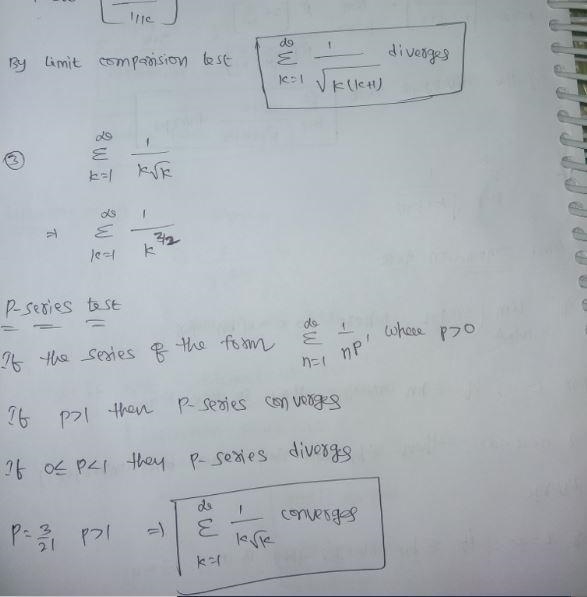 1/k
By Limit comparision test ∞ Σ k=1 1/√k(k+1) diverges
③ ∞ Σ k=1 1/k√k
⇒ ∞ Σ k=1 1/k^3/2
P-series test
If the series of the form ∞ Σ n=1 1/n^p, where p>0
If p>1 then P-series converges
If 0≤p<1 they p-series diverge
P=3/2, p>1 ⇒ ∞ Σ k=1 1/k√k converges